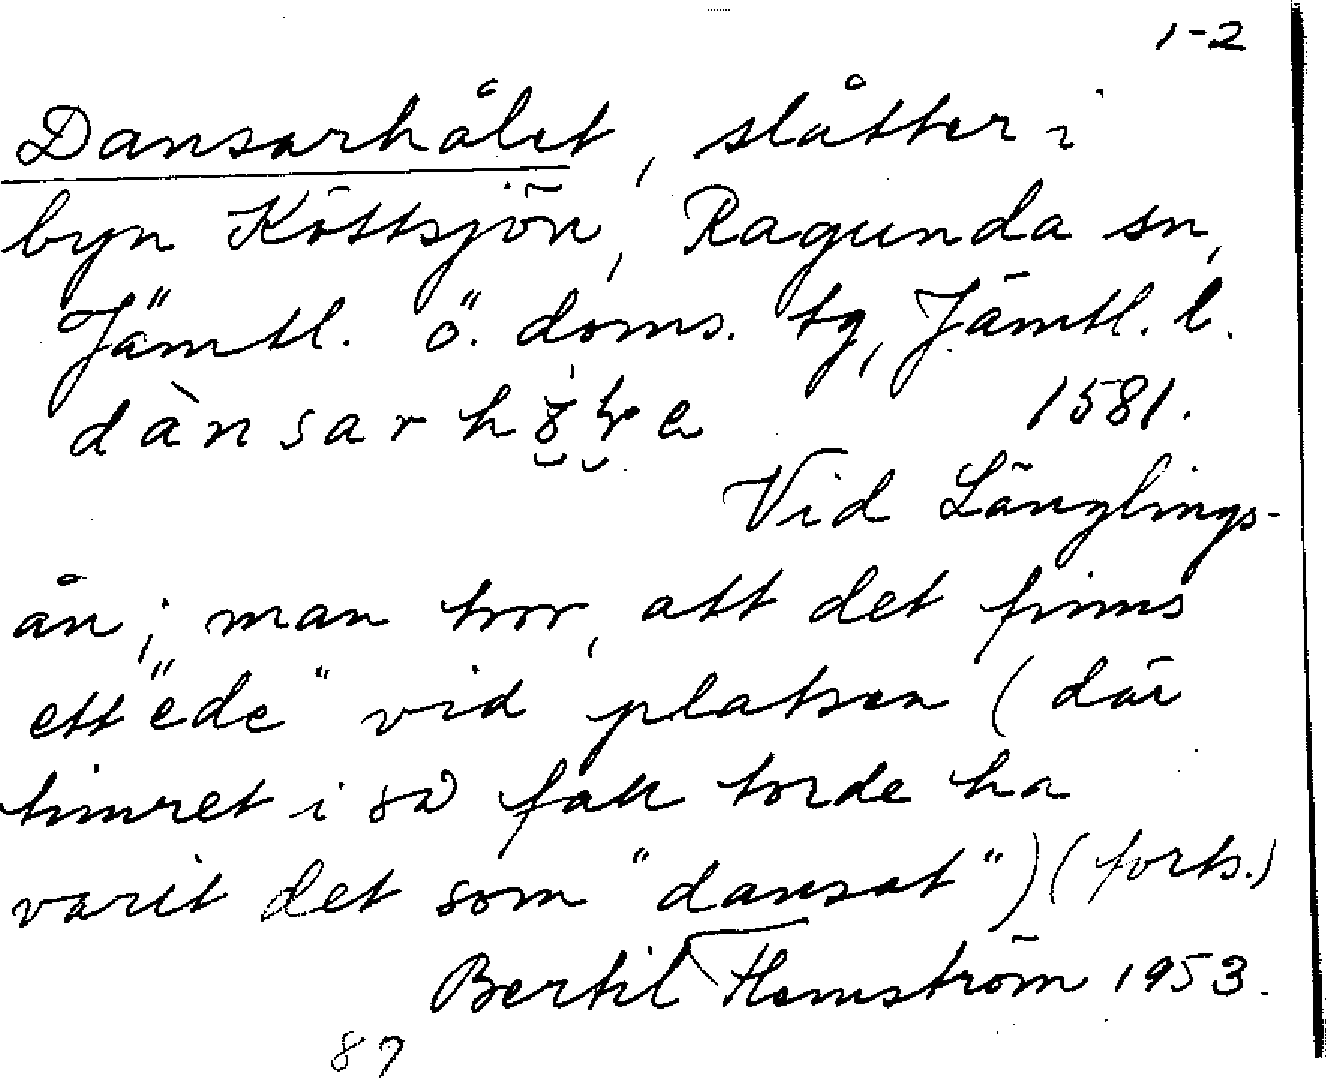 1-2
Dansarhålet, slåtter i
byn Köttsjön, Ragunda sn,
Jämtl. ö. doms. tg, Jämtl. l.
1581.
Vid Länglings-
ån; man tror, att det finns
ett "ede" vid platsen (där
timret i så fall torde ha
varit det som "dansat") (forts.)
Bertil Hemström 1953.
87